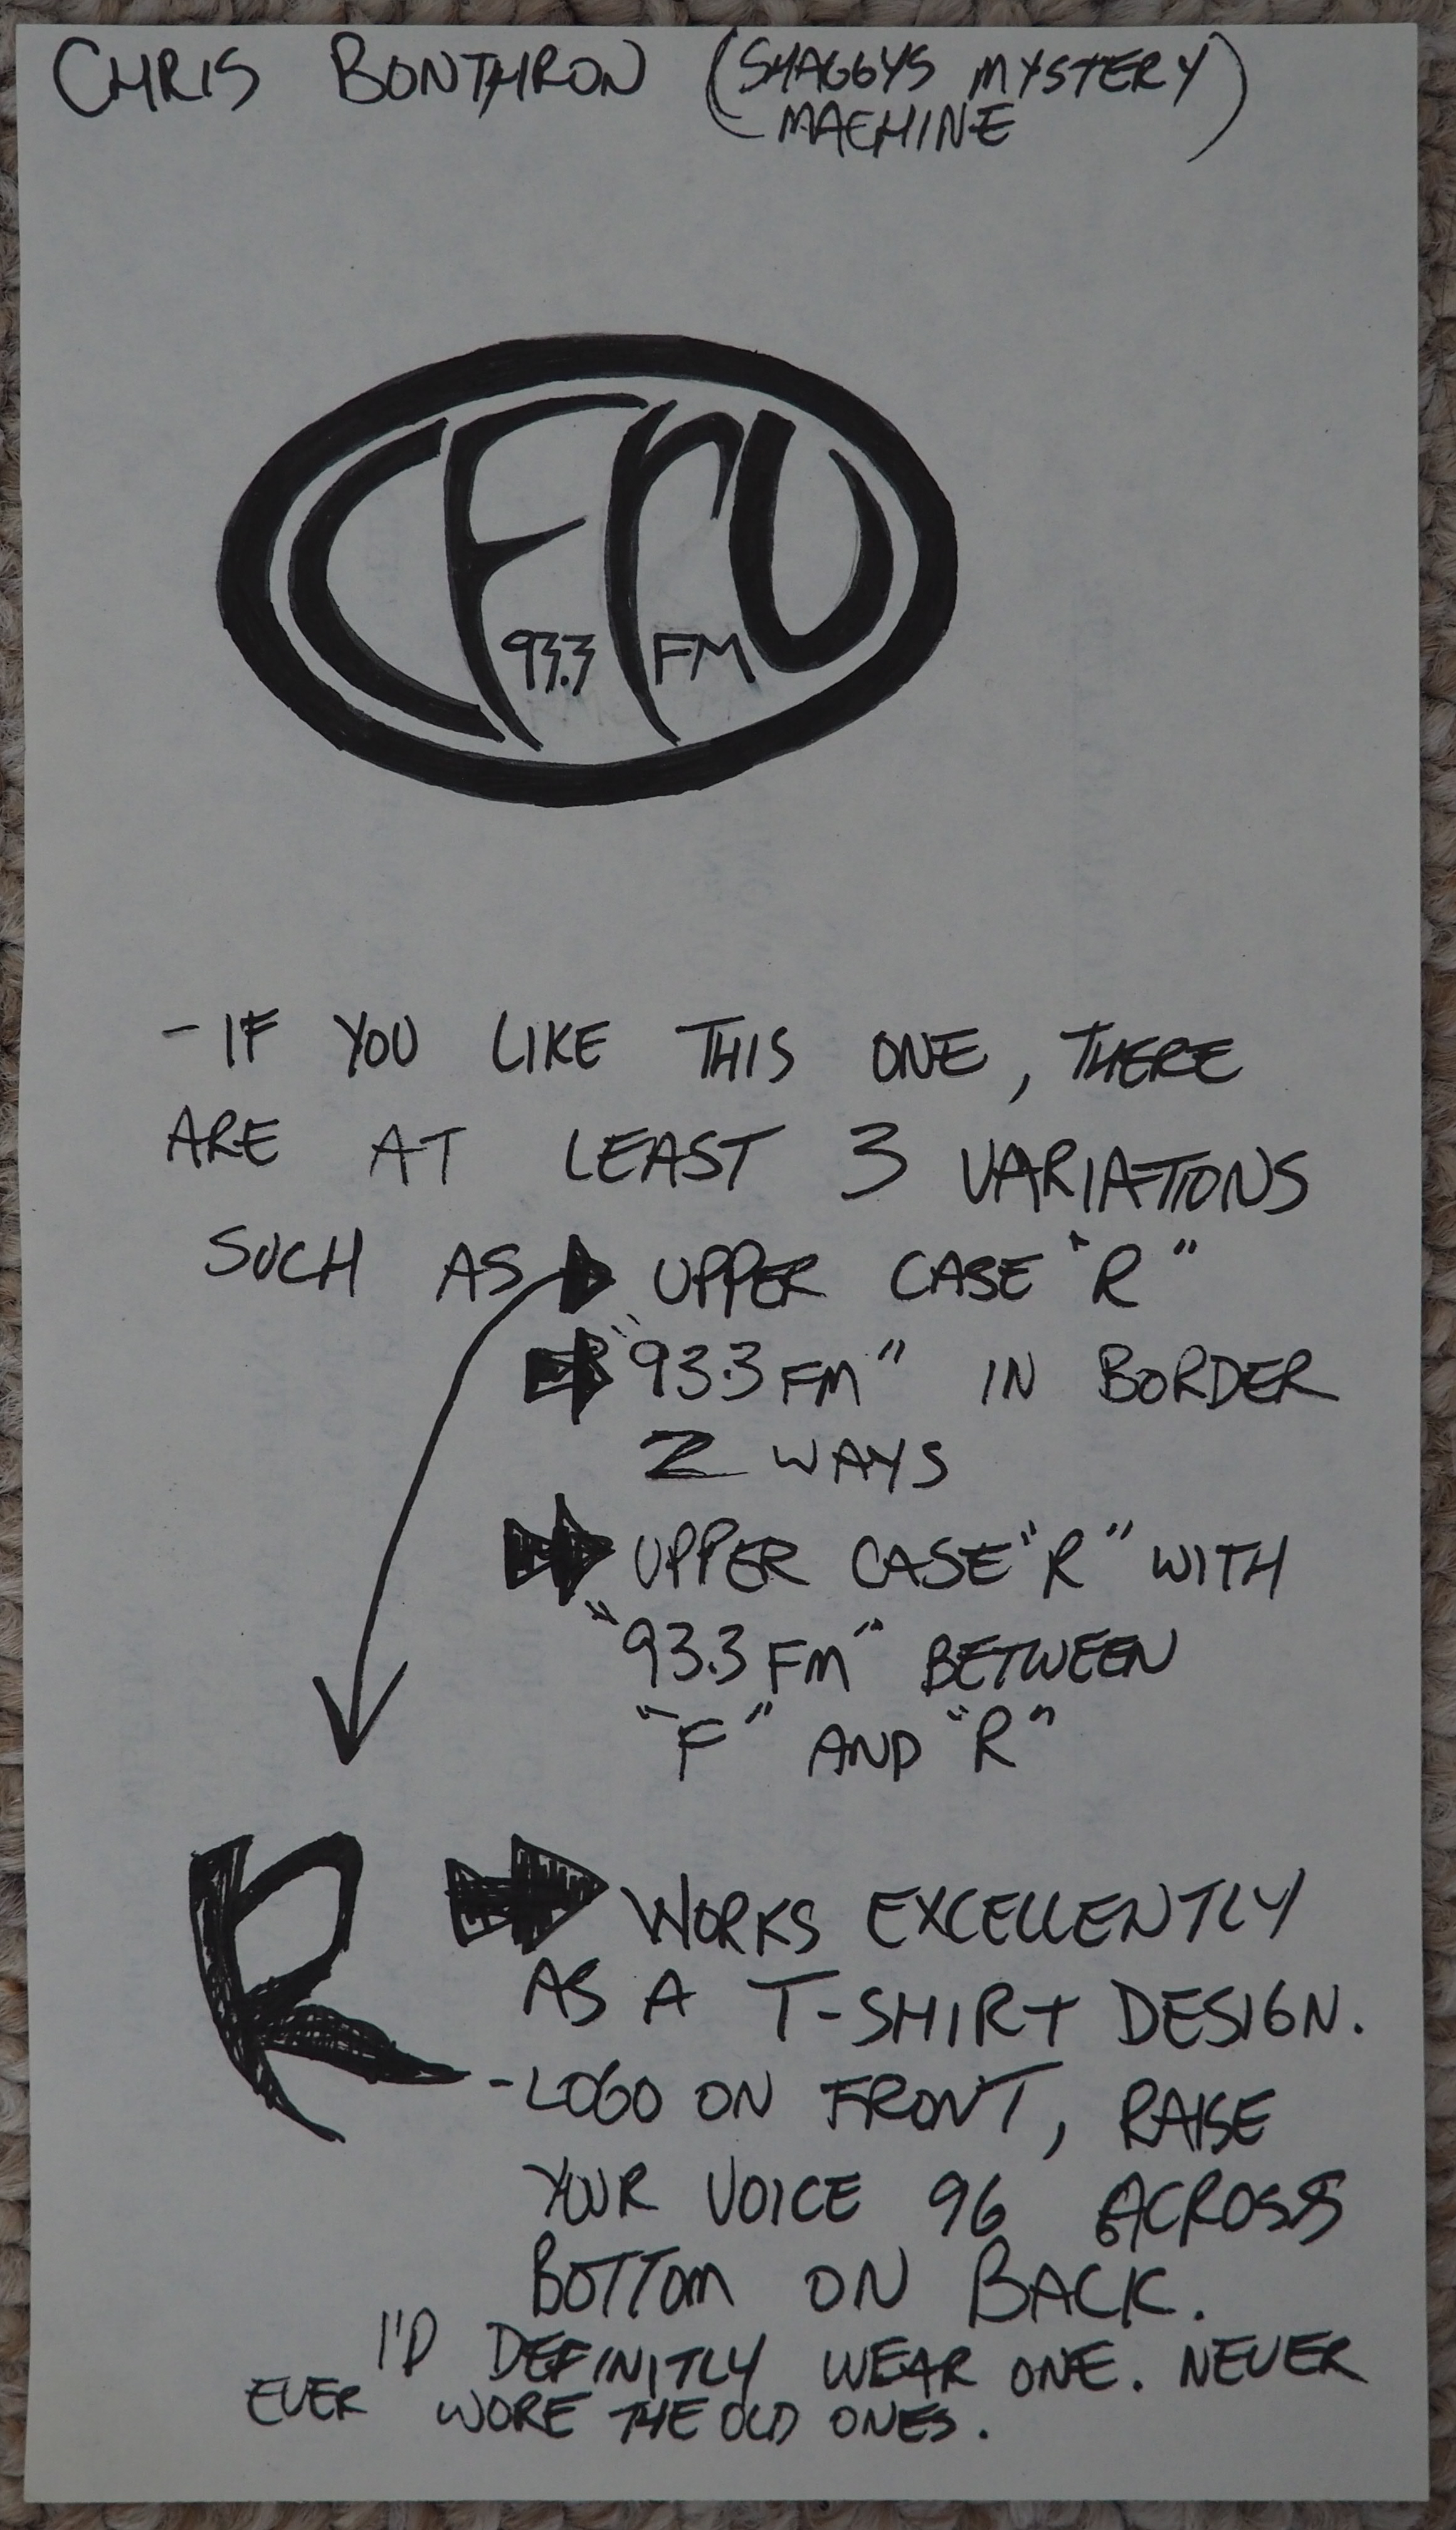 CHRIS BONTHRON (SHAGGYS MYSTERY
MACHINE)
CFrU
93.3 FM
- IF YOU LIKE THIS ONE, THERE
ARE AT LEAST 3 VARIATIONS
SUCH AS UPPER CASE "R"
"93.3 FM" IN BORDER
2 WAYS
UPPER CASE "R" WITH
"93.3 FM" BETWEEN
"F" AND "R"
R
WORKS EXCELLENTLY
AS A T-SHIRT DESIGN.
-LOGO ON FRONT, RAISE
YOUR VOICE 96 ACROSS
BOTTOM ON BACK.
I'D DEFINITLY WEAR ONE. NEVER
EVER WORE THE OLD ONES.